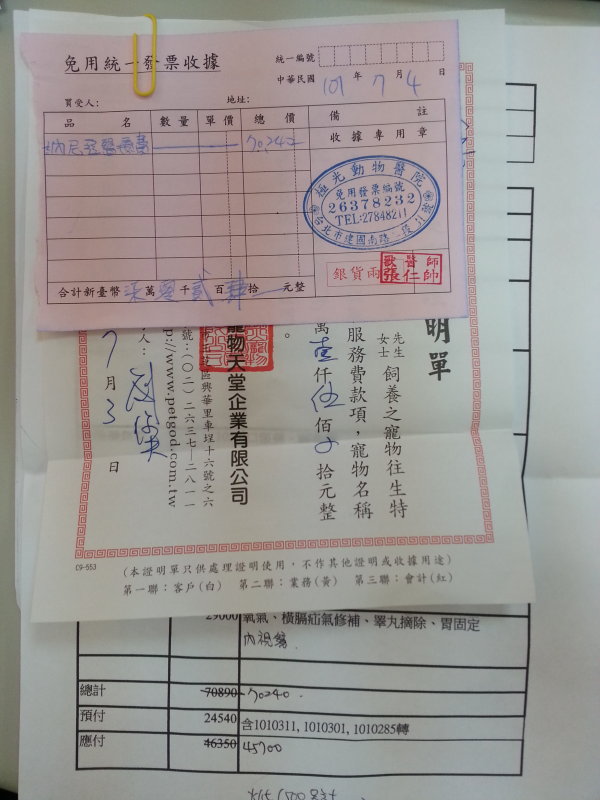 免用統一發票收據
統一編號
中華民國 101 年 7 月 4 日
買受人: 地址:
品名 數量 單價 總價 備註
醫療費 70240
收據專用章
極光動物醫院
免用發票編號
26378232
TEL:27848211
台北市建國南路一段
銀貨兩
獸醫師
張仁帥
合計新臺幣 柒萬零千貳百肆拾 元整
明單
先生
女士
飼養之寵物往生特
服務費款項,寵物名稱
萬壹仟伍佰 拾元整
。
寵物天堂企業有限公司
區興華里車埕十六號之六
號:(〇二)二六三七—二八一一
http://www.petgod.com.tw
人:
7月3日
C9-553
(本證明單只供處理證明使用,不作其他證明或收據用途)
第一聯:客戶(白) 第二聯:業務(黃) 第三聯:會計(紅)
29000 氧氣、橫膈疝氣修補、睪丸摘除、胃固定
內視鏡
總計 70890 70240
預付 24540 含1010311, 1010301, 1010285轉
應付 46350 45700